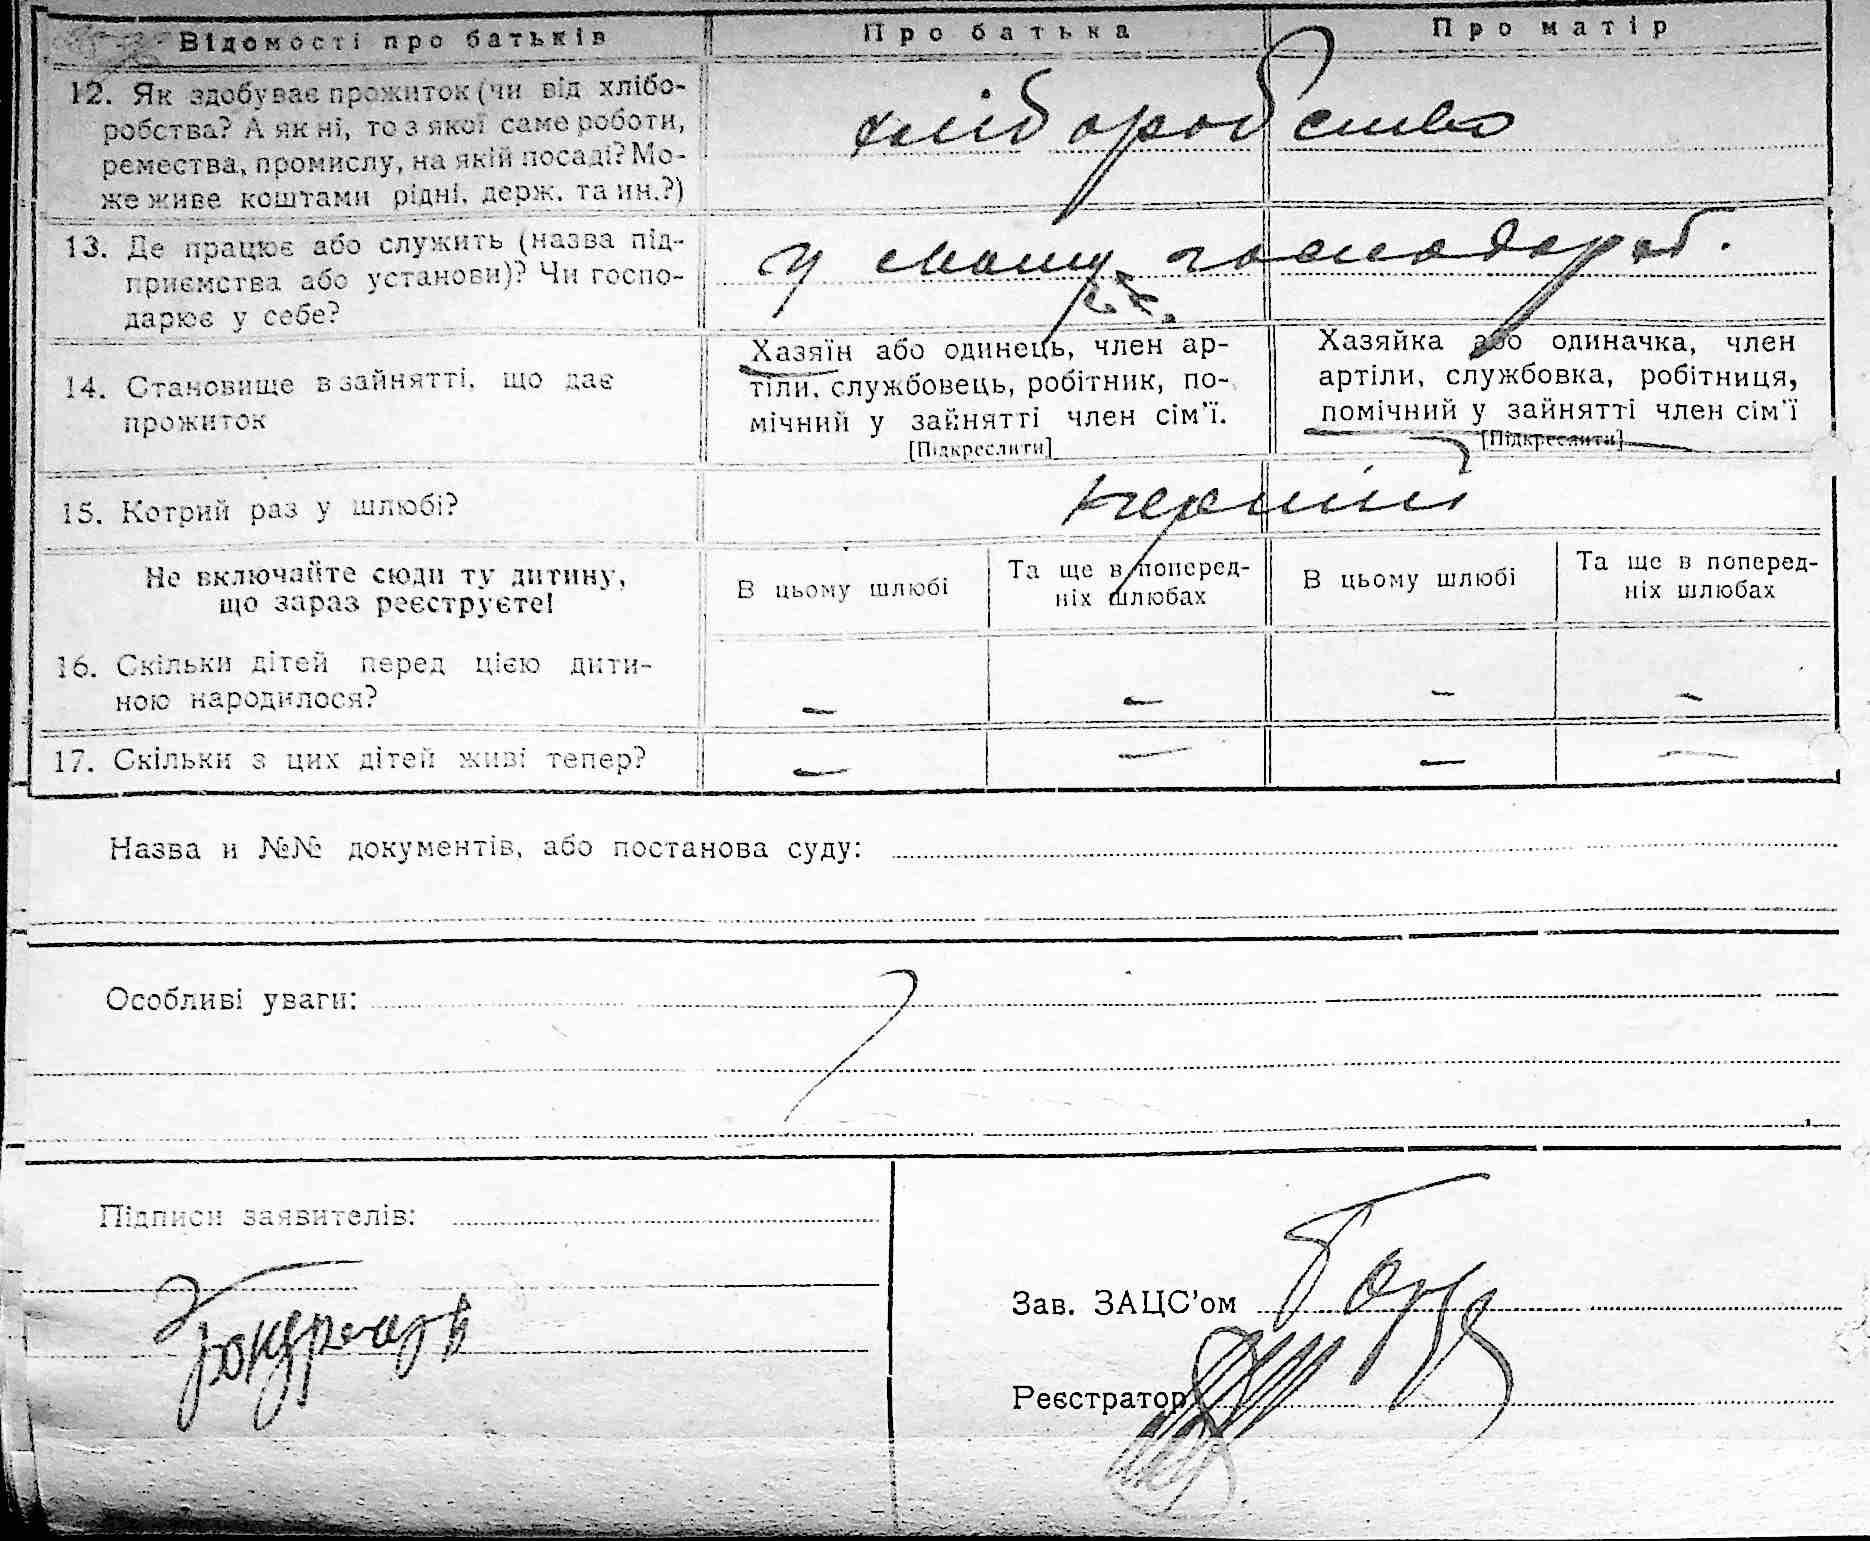 Відомості про батьків Про батька Про матір
12. Як здобуває прожиток (чи від хлібо-
робства? А як ні, то з якої саме роботи,
ремества, промислу, на якій посаді? Мо-
же живе коштами рідні, держ. та ин.?)
хліборобство
13. Де працює або служить (назва під-
приємства або установи)? Чи госпо-
дарює у себе?
у своему господарст.
14. Становище в зайнятті, що дає
прожиток
Хазяїн або одинець, член ар-
тіли, службовець, робітник, по-
мічний у зайнятті член сім'ї.
[Підкреслити]
Хазяйка або одиначка, член
артіли, службовка, робітниця,
помічний у зайнятті член сім'ї
[Підкреслити]
15. Котрий раз у шлюбі?
перший
Не включайте сюди ту дитину,
що зараз реєструєте!
В цьому шлюбі
Та ще в поперед-
ніх шлюбах
В цьому шлюбі
Та ще в поперед-
ніх шлюбах
16. Скільки дітей перед цією дити-
ною народилося?
— — — —
17. Скільки з цих дітей живі тепер?
— — — —
Назва и №№ документів, або постанова суду:
Особливі уваги:
Підписи заявителів:
Зав. ЗАЦС'ом
Реєстратор